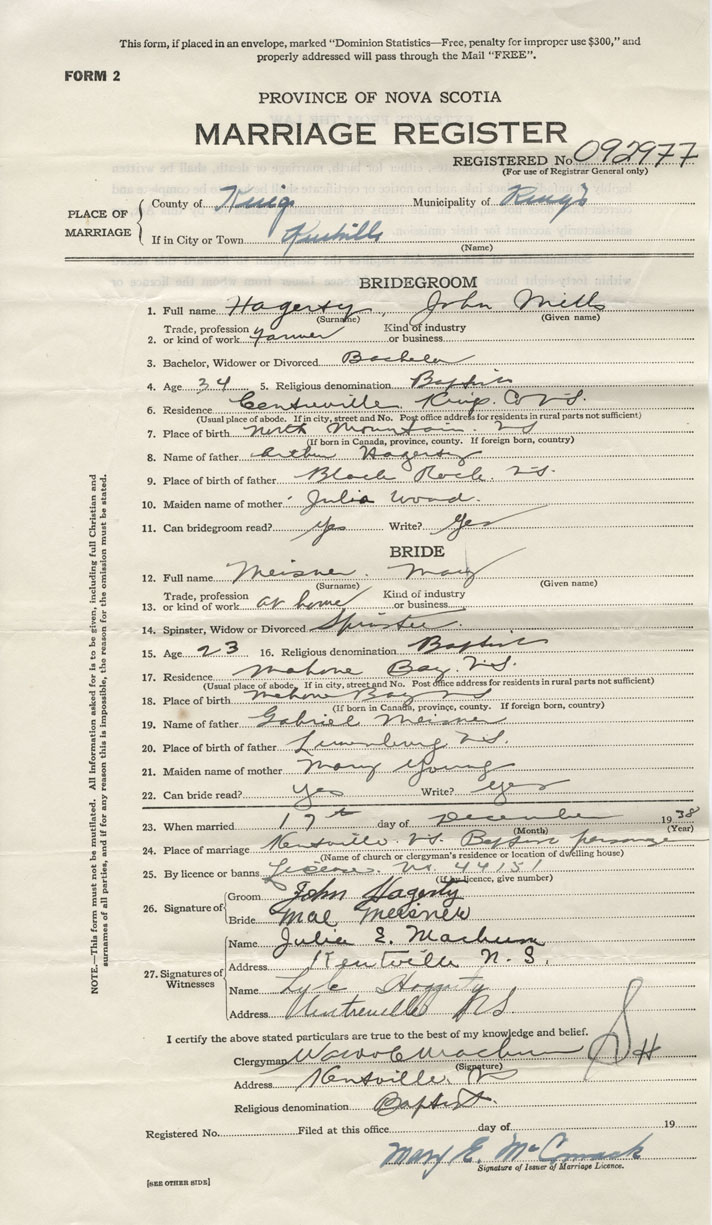 This form, if placed in an envelope, marked "Dominion Statistics—Free, penalty for improper use $300," and
properly addressed will pass through the Mail "FREE".
FORM 2
PROVINCE OF NOVA SCOTIA
MARRIAGE REGISTER
REGISTERED No. 092977
(For use of Registrar General only)
PLACE OF MARRIAGE
County of Kings Municipality of King's
If in City or Town Kentville
(Name)
BRIDEGROOM
1. Full name Hagerty, John Mills
(Surname) (Given name)
2. Trade, profession or kind of work farmer Kind of industry or business
3. Bachelor, Widower or Divorced Bachelor
4. Age 34 5. Religious denomination Baptist
6. Residence Centreville Kings Co N.S.
(Usual place of abode. If in city, street and No. Post office address for residents in rural parts not sufficient)
7. Place of birth North Mountain. N S
(If born in Canada, province, county. If foreign born, country)
8. Name of father Arthur Hagerty
9. Place of birth of father Black Rock N.S.
10. Maiden name of mother Julia Wood.
11. Can bridegroom read? Yes Write? Yes
BRIDE
12. Full name Meisner. Mary
(Surname) (Given name)
13. Trade, profession or kind of work at home Kind of industry or business
14. Spinster, Widow or Divorced Spinster
15. Age 23 16. Religious denomination Baptist
17. Residence Mahone Bay. N.S.
(Usual place of abode. If in city, street and No. Post office address for residents in rural parts not sufficient)
18. Place of birth Mahone Bay N S
(If born in Canada, province, county. If foreign born, country)
19. Name of father Gabriel Meisner
20. Place of birth of father Lunenburg N.S.
21. Maiden name of mother Mary Young
22. Can bride read? Yes Write? Yes
23. When married 17th day of December 1938
(Month) (Year)
24. Place of marriage Kentville N.S. Baptist parsonage
(Name of church or clergyman's residence or location of dwelling house)
25. By licence or banns License No 44151
(If by licence, give number)
26. Signature of
Groom John Hagerty
Bride Mae Meisner
27. Signatures of Witnesses
Name Julia E. Machum
Address Kentville N.S.
Name Lyle Haggerty
Address Centreville NS
I certify the above stated particulars are true to the best of my knowledge and belief.
Clergyman Machum
(Signature)
Address Kentville N S
Religious denomination Baptist.
Registered No. Filed at this office day of 19
Mary E. McCormack
Signature of Issuer of Marriage Licence.
[SEE OTHER SIDE]
NOTE.—This form must not be mutilated. All information asked for is to be given, including full Christian and
surnames of all parties, and if for any reason this is impossible, the reason for the omission must be stated.